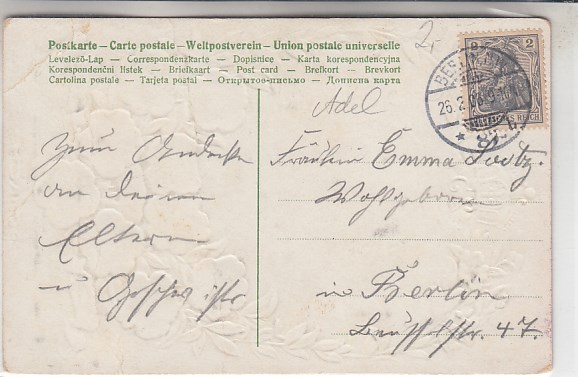 Postkarte – Carte postale – Weltpostverein – Union postale universelle
Levelező-Lap — Correspondenzkarte — Dopisnice — Karta korespondencyjna
Korespondenční lístek — Briefkaart — Post card — Brefkort — Brevkort
Cartolina postale — Tarjeta postal — Открытое письмо — Дописна карта
2.-
Adel
2 2
BERLIN
26.2.06.9-10
REICH
Zum Andenken
an deinen
Eltern
u Geschwister
Fräulein Emma
Wohlgeboren
in Berlin
Beusselstr. 47.